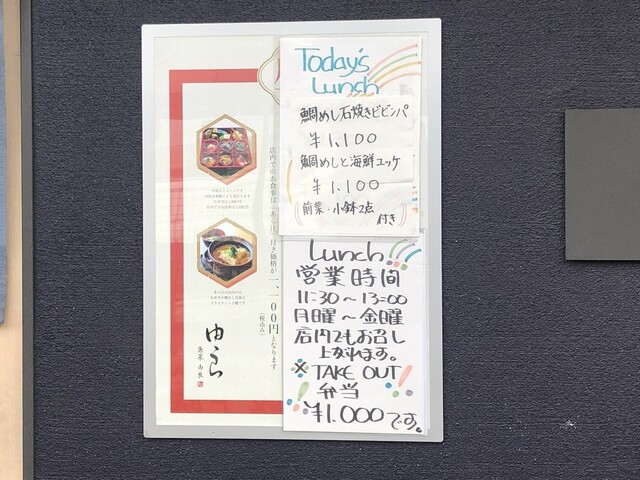 Today's
Lunch
鯛めし石焼きビビンパ
¥1,100
鯛めしと海鮮ユッケ
¥1,100
(前菜・小鉢2点
付き)
Lunch
営業時間
11:30～13:00
月曜～金曜
店内でもお召し
上がれます。
※TAKE OUT
弁当
¥1,000です。
店内でのお食事は「あら汁」付き価格が一、一〇〇円となります
(税込み)
ゆうら
魚菜 由良